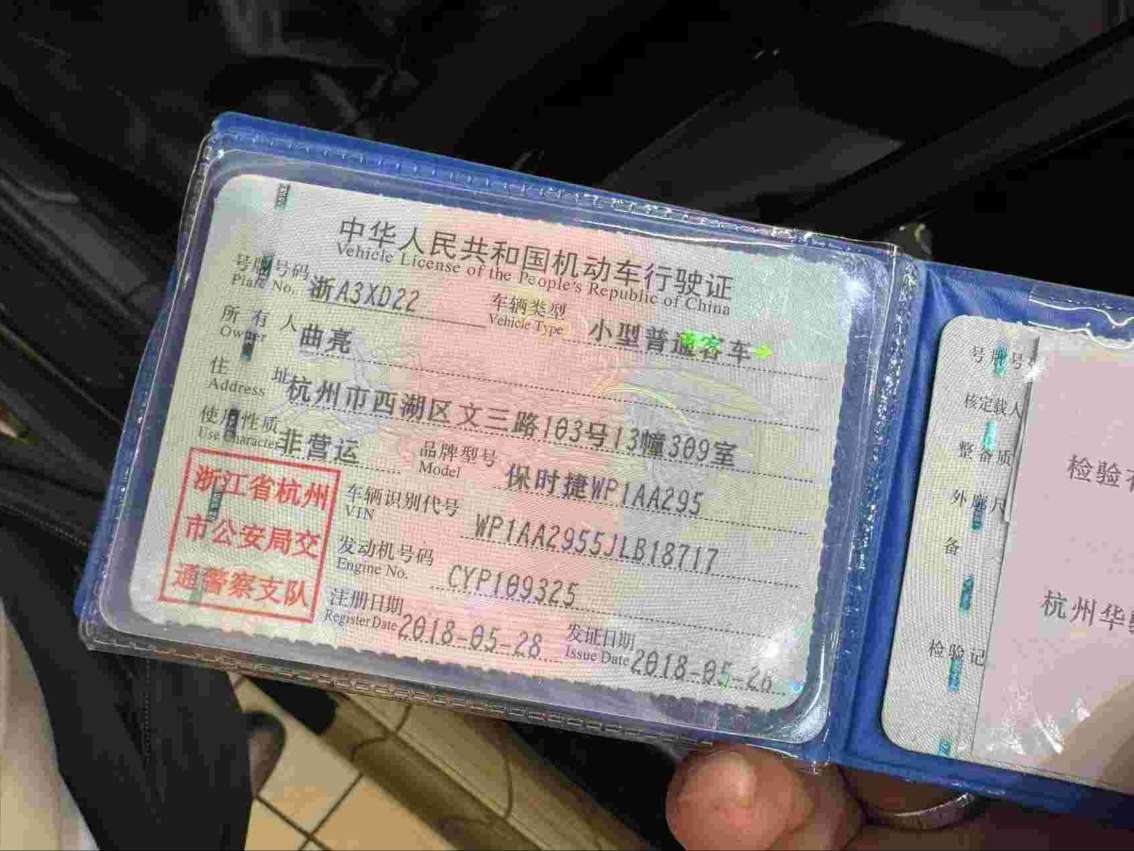 中华人民共和国机动车行驶证
Vehicle License of the People's Republic of China
号牌号码 浙A3XD22 车辆类型 小型普通客车
Plate No. Vehicle Type
所有人 曲亮
Owner
住址 杭州市西湖区文三路103号13幢309室
Address
使用性质 非营运 品牌型号 保时捷WP1AA295
Use Character Model
浙江省杭州
市公安局交
通警察支队
车辆识别代号 WP1AA2955JLB18717
VIN
发动机号码 CYP109325
Engine No.
注册日期 2018-05-28 发证日期 2018-05-28
Register Date Issue Date
号牌号
核定载人
整备质
外廓尺
备
检验记
检验有
杭州华